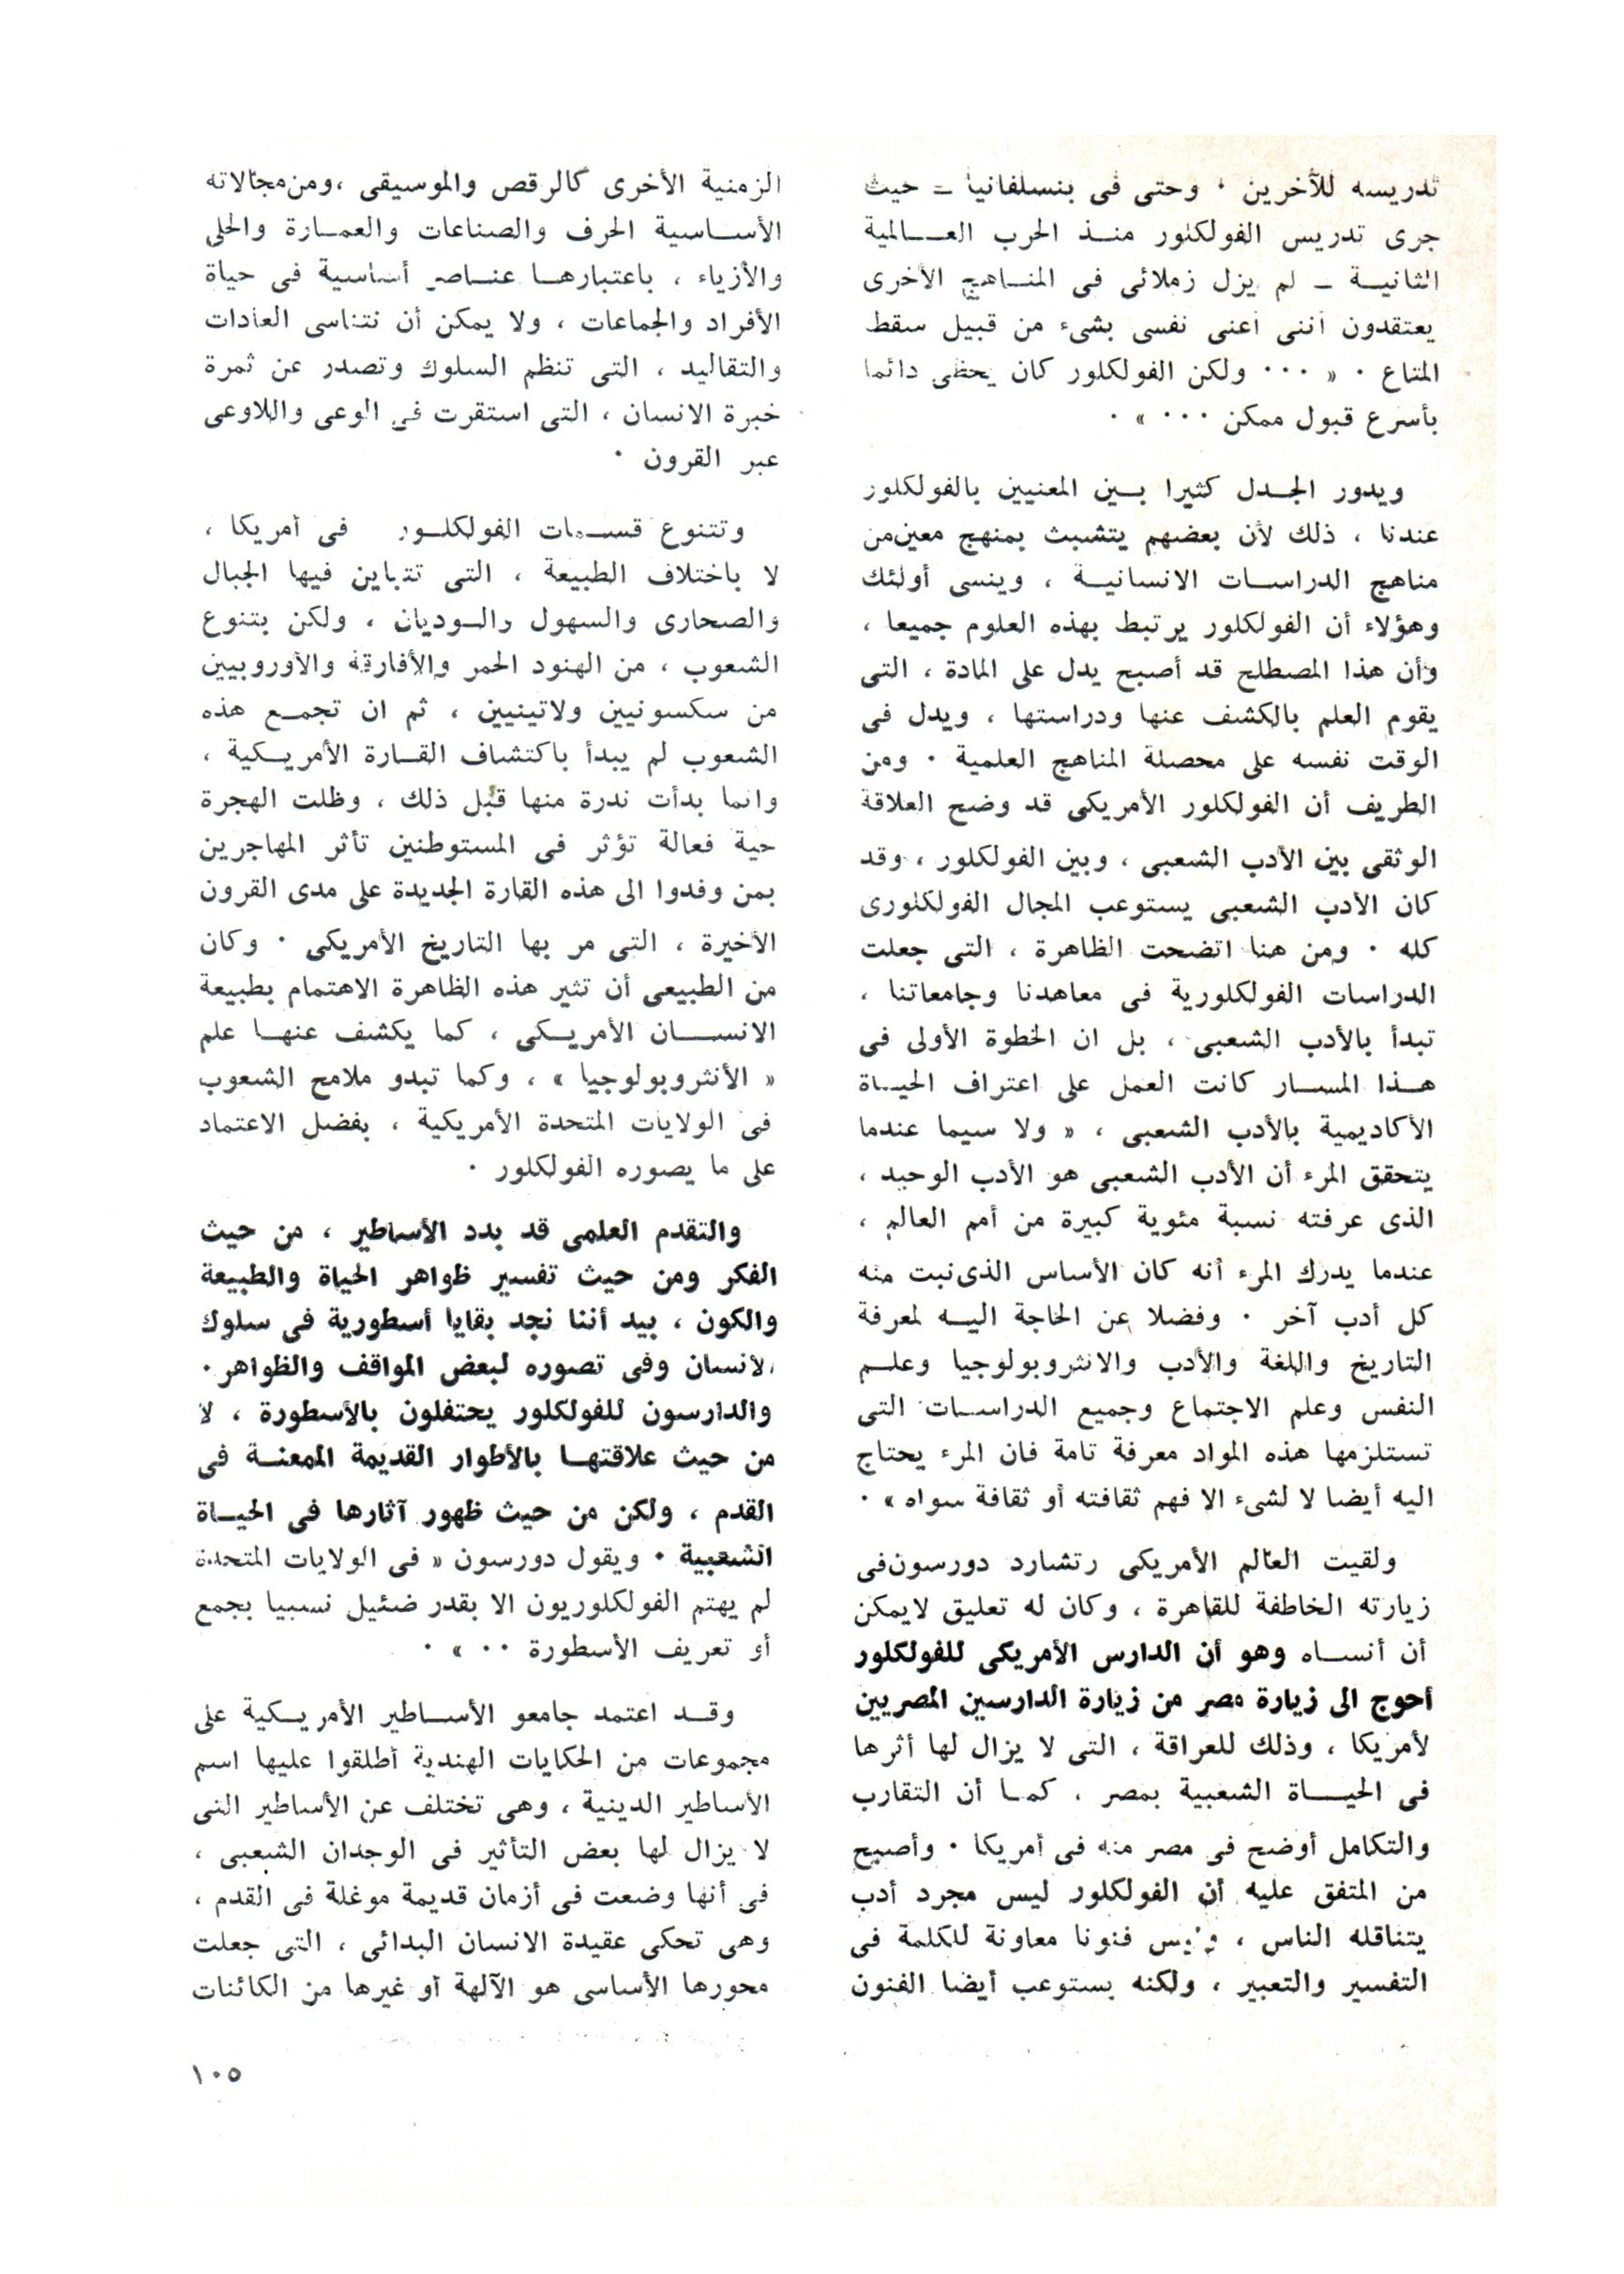 تدريسه للآخرين ٠ وحتى فى بنسلفانيا ـ حيث
جرى تدريس الفولكلور منــذ الحرب العــالمية
الثانيــة ـ لم يزل زملائى فى المنــاهج الأخرى
يعتقدون أننى أعنى نفسى بشىء من قبيل سقط
المتاع ٠ « ٠٠٠ ولكن الفولكلور كان يحظى دائما
بأسرع قبول ممكن ٠٠٠ » ٠
ويدور الجــدل كثيرا بــين المعنيين بالفولكلور
عندنا ، ذلك لأن بعضهم يتشبث بمنهج معين من
مناهج الدراســات الانسانيــة ، وينسى أولئك
وهؤلاء أن الفولكلور يرتبط بهذه العلوم جميعا ،
وأن هذا المصطلح قد أصبح يدل على المادة ، التى
يقوم العلم بالكشف عنها ودراستها ، ويدل فى
الوقت نفسه على محصلة المناهج العلمية ٠ ومن
الطريف أن الفولكلور الأمريكى قد وضح العلاقة
الوثقى بين الأدب الشعبى ، وبين الفولكلور ، وقد
كان الأدب الشعبى يستوعب المجال الفولكلورى
كله ٠ ومن هنا اتضحت الظاهرة ، التى جعلت
الدراسات الفولكلورية فى معاهدنا وجامعاتنا ،
تبدأ بالأدب الشعبى ، بل ان الخطوة الأولى فى
هــذا المســار كانت العمل على اعتراف الحيــاة
الأكاديمية بالأدب الشعبى ، « ولا سيما عندما
يتحقق المرء أن الأدب الشعبى هو الأدب الوحيد ،
الذى عرفته نسبة مئوية كبيرة من أمم العالم ،
عندما يدرك المرء أنه كان الأساس الذى نبت منه
كل أدب آخر ٠ وفضلا عن الحاجة اليــه لمعرفة
التاريخ واللغة والأدب والانثروبولوجيا وعلــم
النفس وعلم الاجتماع وجميع الدراســات التى
تستلزمها هذه المواد معرفة تامة فان المرء يحتاج
اليه أيضا لا لشىء الا فهم ثقافته أو ثقافة سواه » ٠
ولقيت العالم الأمريكى رتشارد دورسون فى
زيارته الخاطفة للقاهرة ، وكان له تعليق لايمكن
أن أنســاه وهو أن الدارس الأمريكى للفولكلور
أحوج الى زيارة مصر من زيارة الدارسين المصريين
لأمريكا ، وذلك للعراقة ، التى لا يزال لها أثرها
فى الحيــاة الشعبية بمصر ، كمــا أن التقارب
والتكامل أوضح فى مصر منه فى أمريكا ٠ وأصبح
من المتفق عليه أن الفولكلور ليس مجرد أدب
يتناقله الناس ، وليس فنونا معاونة للكلمة فى
التفسير والتعبير ، ولكنه يستوعب أيضا الفنون
الزمنية الأخرى كالرقص والموسيقى ، ومن مجالاته
الأســاسية الحرف والصناعات والعمــارة والحلى
والأزياء ، باعتبارهــا عنــاصر أساسية فى حياة
الأفراد والجماعات ، ولا يمكن أن نتناسى العادات
والتقاليد ، التى تنظم السلوك وتصدر عن ثمرة
خبرة الانسان ، التى استقرت فى الوعى واللاوعى
عبر القرون ٠
وتتنوع قســمات الفولكلــور فى أمريكا ،
لا باختلاف الطبيعة ، التى تتباين فيها الجبال
والصحارى والسهول والــوديان ، ولكن بتنوع
الشعوب ، من الهنود الحمر والأفارقة والأوروبيين
من سكسونيين ولاتينيين ، ثم ان تجمــع هذه
الشعوب لم يبدأ باكتشاف القــارة الأمريــكية ،
وانما بدأت ندرة منها قبل ذلك ، وظلت الهجرة
حية فعالة تؤثر فى المستوطنين تأثر المهاجرين
بمن وفدوا الى هذه القارة الجديدة على مدى القرون
الأخيرة ، التى مر بها التاريخ الأمريكى ٠ وكان
من الطبيعى أن تثير هذه الظاهرة الاهتمام بطبيعة
الانســان الأمريــكى ، كما يكشف عنهــا علم
« الأنثروبولوجيا » ، وكما تبدو ملامح الشعوب
فى الولايات المتحدة الأمريكية ، بفضل الاعتماد
على ما يصوره الفولكلور ٠
والتقدم العلمى قد بدد الأساطير ، من حيث
الفكر ومن حيث تفسير ظواهر الحياة والطبيعة
والكون ، بيد أننا نجد بقايا أسطورية فى سلوك
الانسان وفى تصوره لبعض المواقف والظواهر ٠
والدارسون للفولكلور يحتفلون بالأسطورة ، لا
من حيث علاقتهــا بالأطوار القديمة الممعنــة فى
القدم ، ولكن من حيث ظهور آثارها فى الحيــاة
الشعبية ٠ ويقول دورسون « فى الولايات المتحدة
لم يهتم الفولكلوريون الا بقدر ضئيل نسبيا بجمع
أو تعريف الأسطورة ٠٠ » ٠
وقــد اعتمد جامعو الأســاطير الأمريــكية على
مجموعات من الحكايات الهندية أطلقوا عليها اسم
الأساطير الدينية ، وهى تختلف عن الأساطير التى
لا يزال لها بعض التأثير فى الوجدان الشعبى ،
فى أنها وضعت فى أزمان قديمة موغلة فى القدم ،
وهى تحكى عقيدة الانسان البدائى ، التى جعلت
محورها الأساسى هو الآلهة أو غيرها من الكائنات
١٠٥